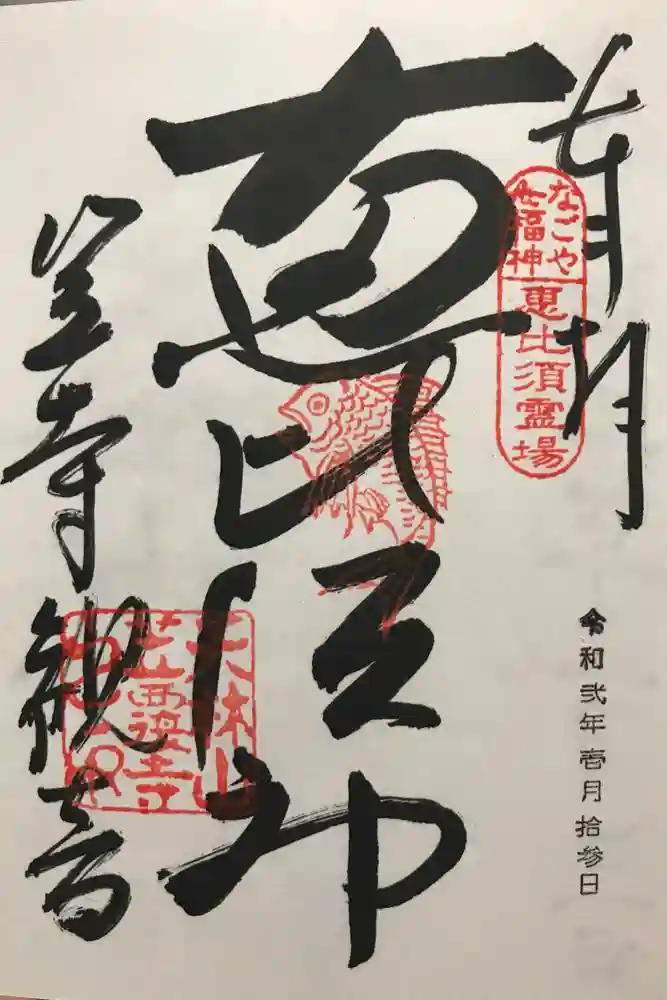 奉拝
なごや
七福神
恵比須霊場
令和弐年壱月拾参日
恵比須神
笠寺観音